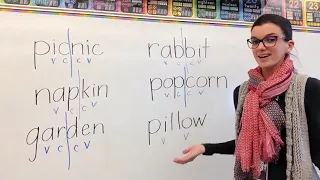 picnic
V C C V
napkin
V C C V
garden
V C C V
rabbit
V C C V
popcorn
V C C V
pillow
V V